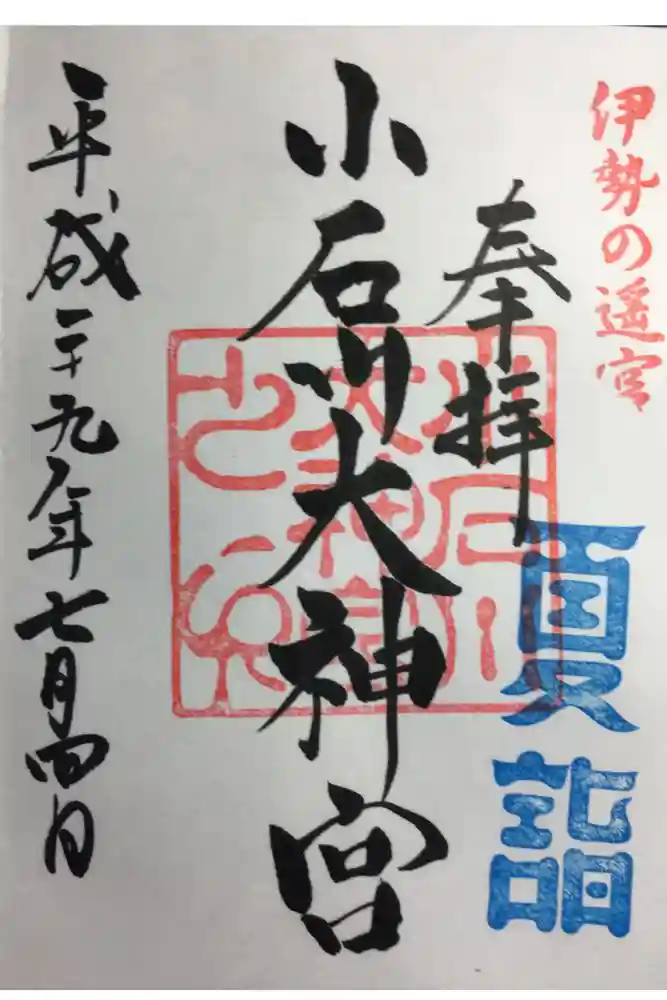 伊勢の遥宮
奉拝
夏詣
小石川大神宮
平成二十九年七月四日